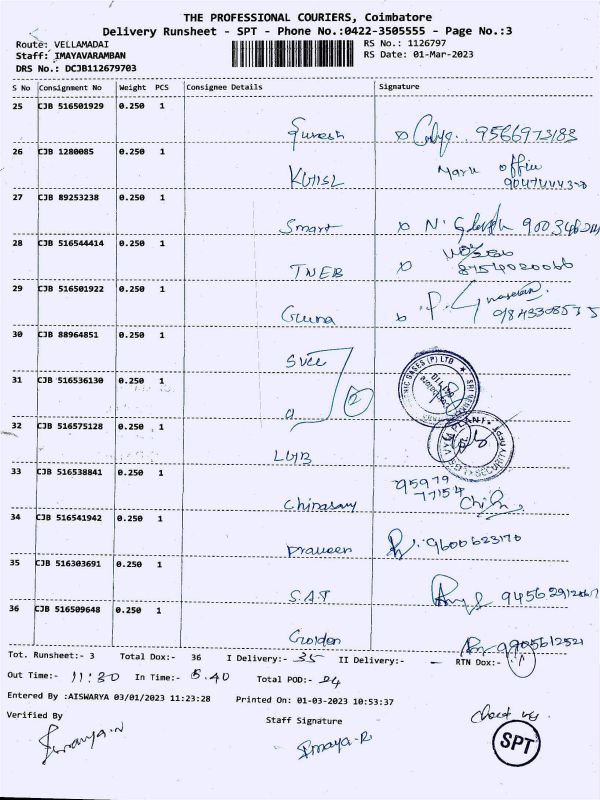 THE PROFESSIONAL COURIERS, Coimbatore
Delivery Runsheet - SPT - Phone No.:0422-3505555 - Page No.:3
Route: VELLAMADAI RS No.: 1126797
Staff: IMAYAVARAMBAN RS Date: 01-Mar-2023
DRS No.: DCJB112679703
S No Consignment No Weight PCS Consignee Details Signature
25 CJB 516501929 0.250 1
Suresh 9566973183
26 CJB 1280085 0.250 1
Mark office
27 CJB 89253238 0.250 1
Smart N.
28 CJB 516544414 0.250 1
TNEB 8754020066
29 CJB 516501922 0.250 1
Guna P. 9843308535
30 CJB 88964851 0.250 1
Sree
31 CJB 516536130 0.250 1
2
32 CJB 516575128 0.250 1
33 CJB 516538841 0.250 1
95979
77154
Chinasamy
34 CJB 516541942 0.250 1
Praveen 9600623170
35 CJB 516303691 0.250 1
S.A.T
36 CJB 516509648 0.250 1
Golden 9905612521
Tot. Runsheet:- 3 Total Dox:- 36 I Delivery:- 35 II Delivery:- - RTN Dox:- 1
Out Time:- 11:30 In Time:- 5.40 Total POD:- 24
Entered By :AISWARYA 03/01/2023 11:23:28 Printed On: 01-03-2023 10:53:37
Verified By Staff Signature
Imaya-R
SPT